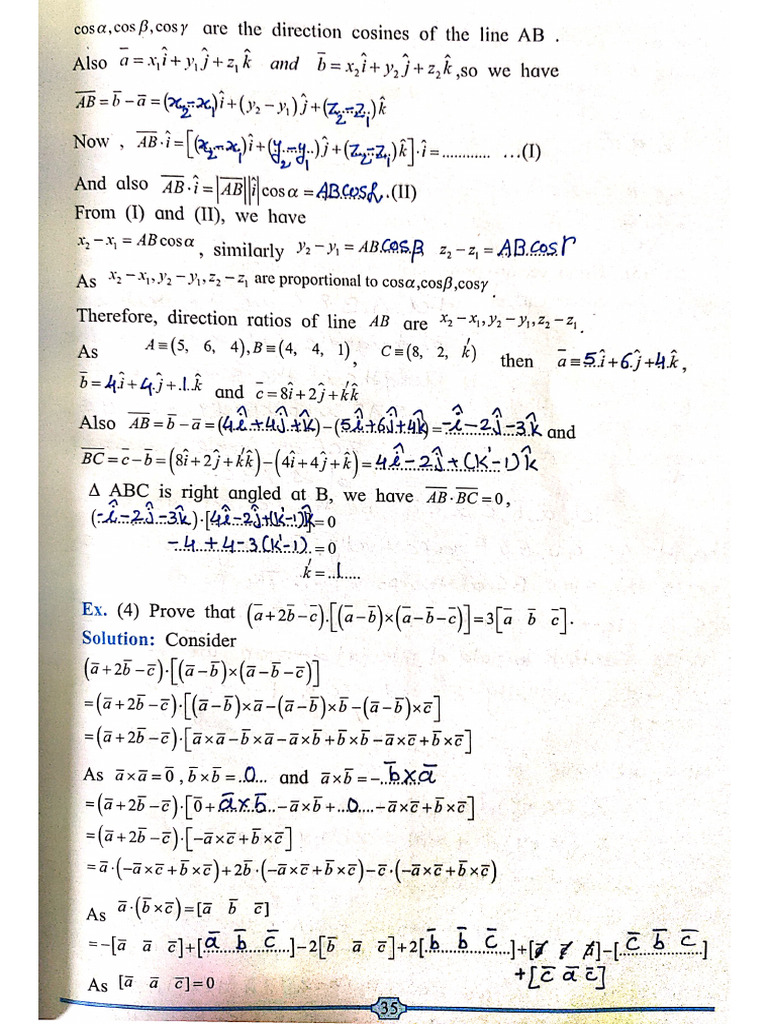 cosα,cosβ,cosγ are the direction cosines of the line AB .
Also a̅ = x₁î + y₁ĵ + z₁k̂ and b̅ = x₂î + y₂ĵ + z₂k̂ ,so we have
A̅B̅ = b̅ − a̅ = (x₂−x₁)î + (y₂ − y₁)ĵ + (z₂−z₁)k̂
Now , A̅B̅·î = [(x₂−x₁)î + (y₂−y₁)ĵ + (z₂−z₁)k̂]·î = ............ …(I)
And also A̅B̅·î = |A̅B̅||î|cosα = AB cosα .(II)
From (I) and (II), we have
x₂ − x₁ = AB cosα , similarly y₂ − y₁ = AB cosβ z₂ − z₁ = AB cosγ
As x₂ − x₁, y₂ − y₁, z₂ − z₁ are proportional to cosα,cosβ,cosγ .
Therefore, direction ratios of line AB are x₂ − x₁, y₂ − y₁, z₂ − z₁ .
As A≡(5, 6, 4), B≡(4, 4, 1) , C≡(8, 2, k') then a̅ ≡ 5î + 6ĵ + 4k̂ ,
b̅ = 4î + 4ĵ + 1k̂ and c̅ = 8î + 2ĵ + k'k̂
Also A̅B̅ = b̅ − a̅ = (4î+4ĵ+k̂) − (5î+6ĵ+4k̂) = −î−2ĵ−3k̂ and
B̅C̅ = c̅ − b̅ = (8î + 2ĵ + k'k̂) − (4î + 4ĵ + k̂) = 4î−2ĵ+(k'−1)k̂
Δ ABC is right angled at B, we have A̅B̅·B̅C̅ = 0 ,
(−î−2ĵ−3k̂)·[4î−2ĵ+(k'−1)k̂] = 0
−4+4−3(k'−1) = 0
k' = ..1.....
Ex. (4) Prove that (a̅+2b̅−c̅).[(a̅−b̅)×(a̅−b̅−c̅)] = 3[a̅ b̅ c̅].
Solution: Consider
(a̅+2b̅−c̅)·[(a̅−b̅)×(a̅−b̅−c̅)]
=(a̅+2b̅−c̅)·[(a̅−b̅)×a̅−(a̅−b̅)×b̅−(a̅−b̅)×c̅]
=(a̅+2b̅−c̅)·[a̅×a̅−b̅×a̅−a̅×b̅+b̅×b̅−a̅×c̅+b̅×c̅]
As a̅×a̅=0̅ , b̅×b̅=..0... and a̅×b̅=−b̅×a̅
=(a̅+2b̅−c̅)·[0̅+a̅×b̅−a̅×b̅+..0....−a̅×c̅+b̅×c̅]
=(a̅+2b̅−c̅)·[−a̅×c̅+b̅×c̅]
=a̅·(−a̅×c̅+b̅×c̅)+2b̅·(−a̅×c̅+b̅×c̅)−c̅·(−a̅×c̅+b̅×c̅)
As a̅·(b̅×c̅)=[a̅ b̅ c̅]
=−[a̅ a̅ c̅]+[a̅ b̅ c̅]−2[b̅ a̅ c̅]+2[b̅ b̅ c̅]+[]−[c̅ b̅ c̅]
+[c̅ a̅ c̅]
As [a̅ a̅ c̅]=0
35